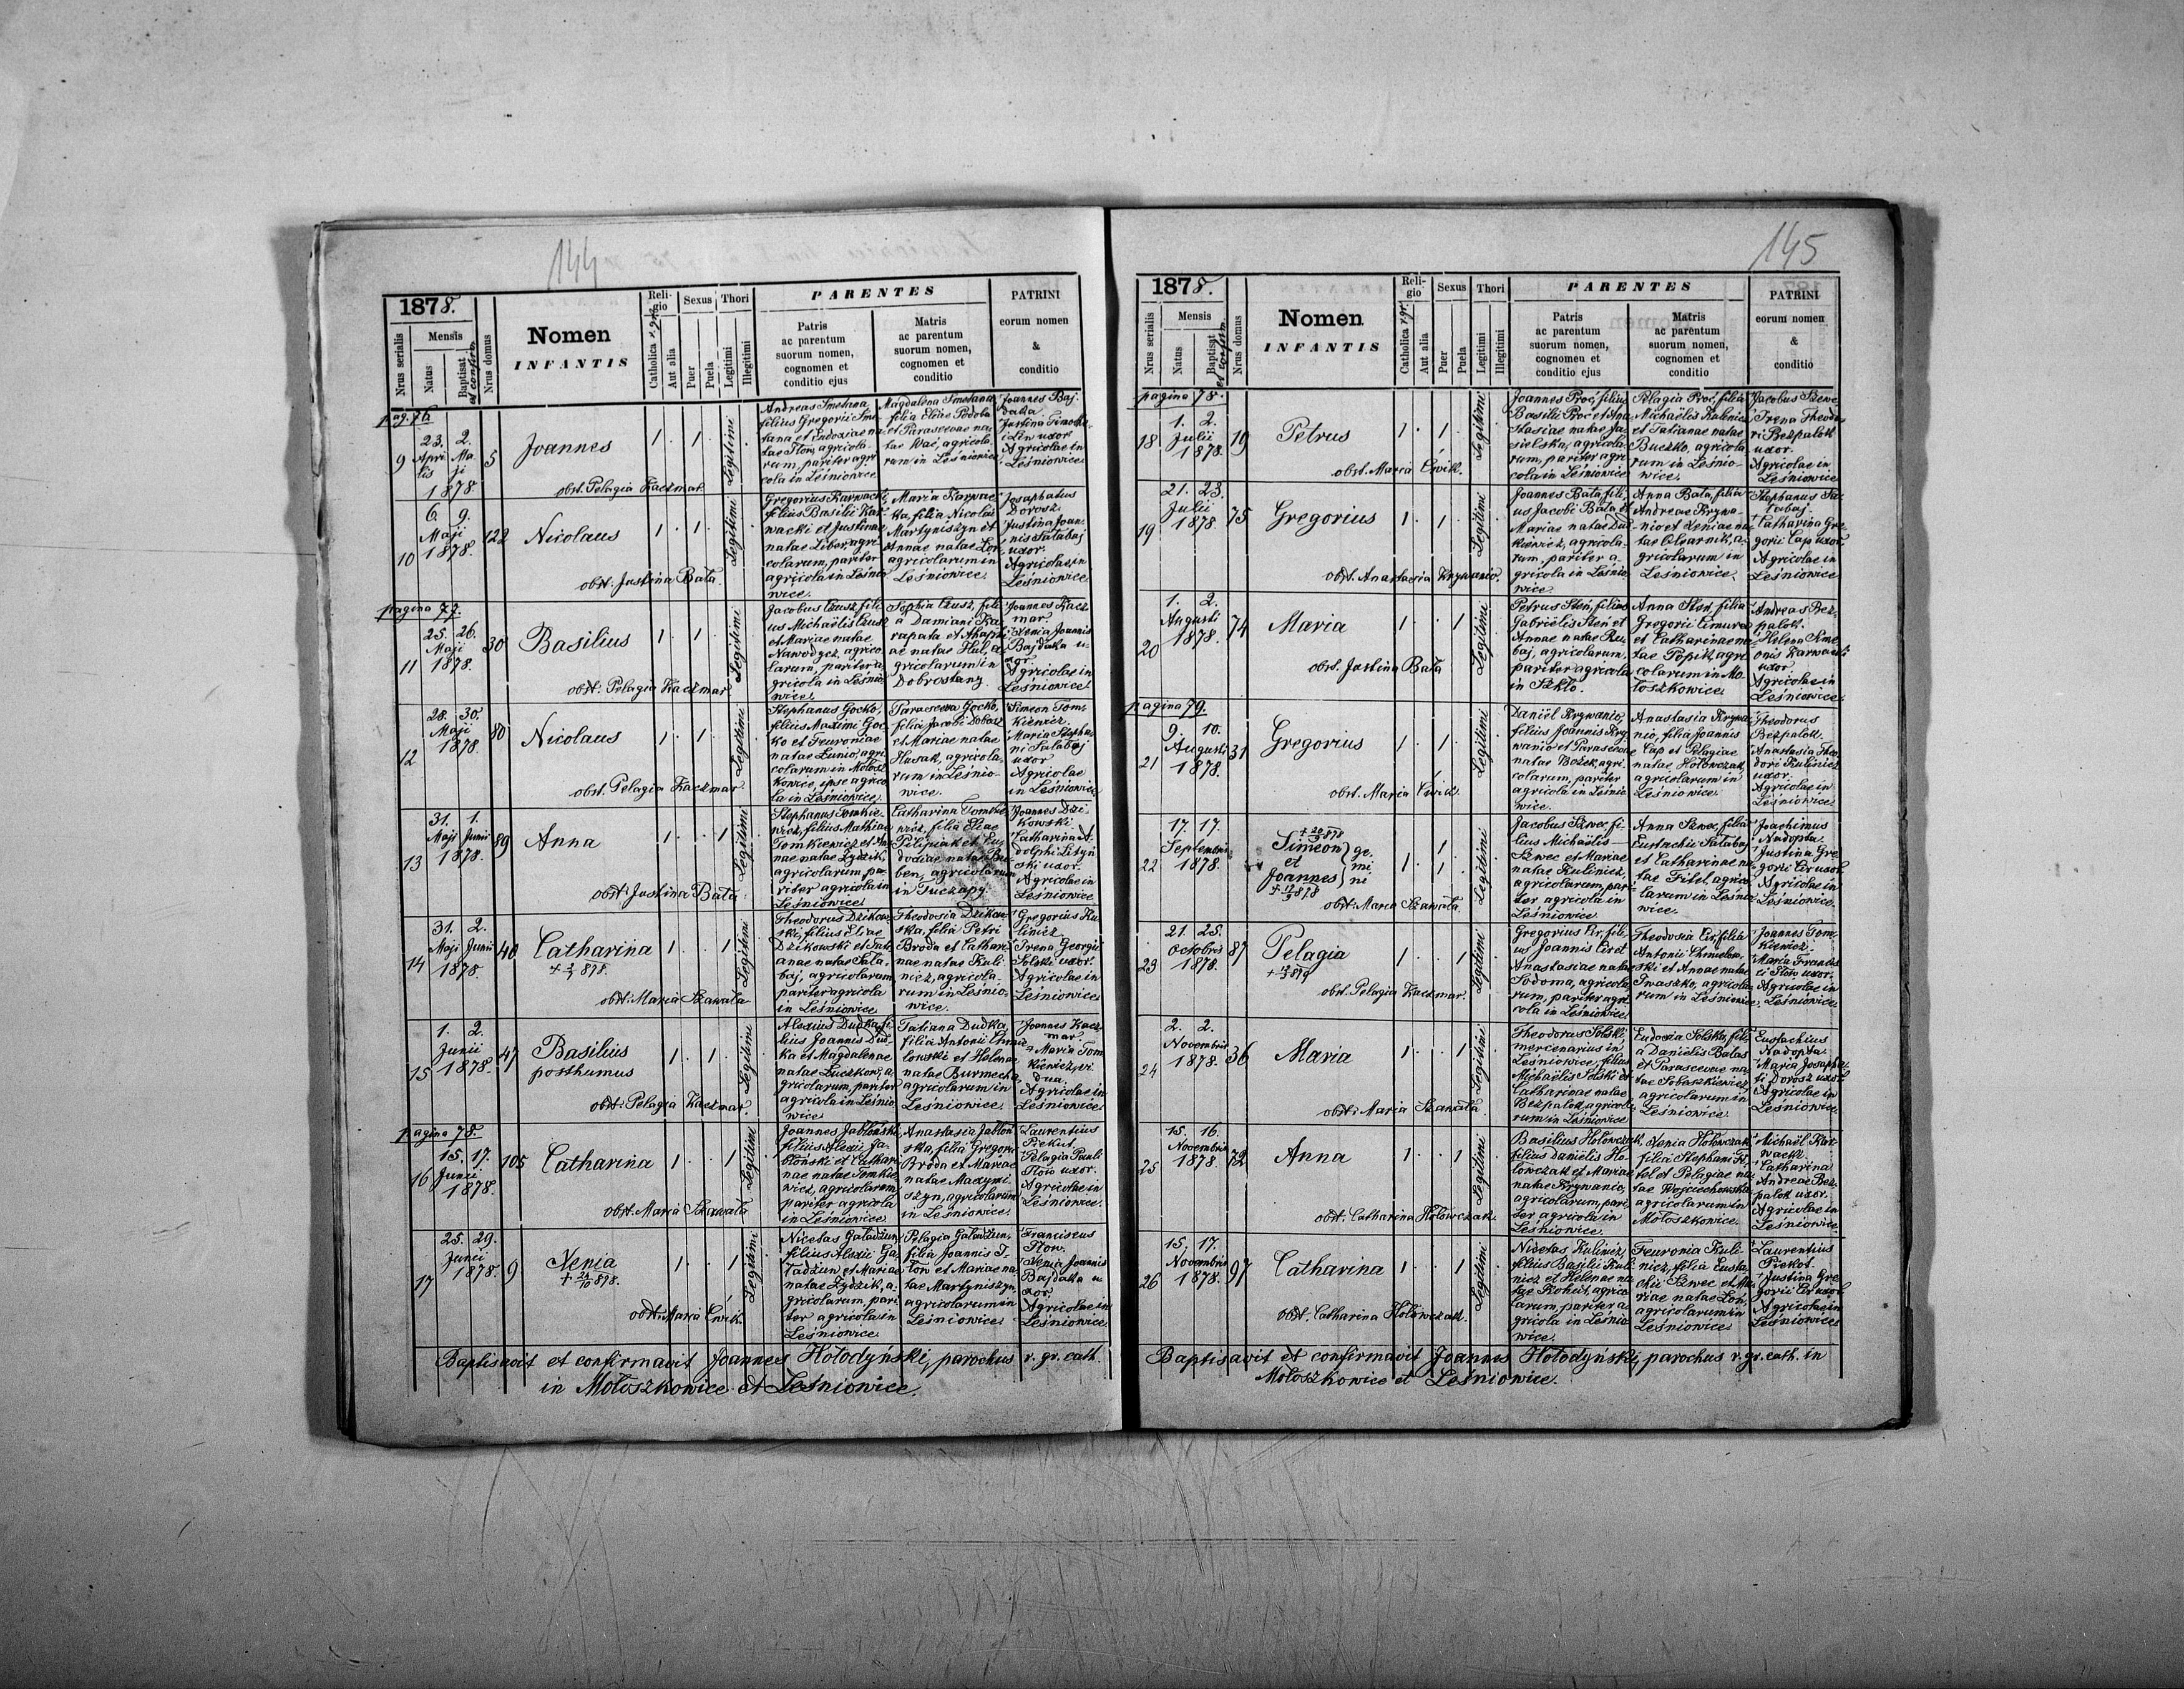 144
1878.
Nrus serialis
Mensis
Natus
Baptisat
et confirm.
Nrus domus
Nomen
INFANTIS
Religio
Catholica r. gr.
Aut alia
Sexus
Puer
Puela
Thori
Legitimi
Illegitimi
PARENTES
Patris
ac parentum
suorum nomen,
cognomen et
conditio ejus
Matris
ac parentum
suorum nomen,
cognomen et
conditio
PATRINI
eorum nomen
&
conditio
pag. 76
9
23. 2.
Aprilis Maji
1878.
5
Joannes
1. 1.
Legitimi
obst. Pelagia Kaczmar
Andreas Smetana
filius Gregorii Sme
tana et Eudoxiae na
tae Tłow, agricola
rum, pariter agri
cola in Leśniowice
Magdalena Smetana
filia Eliae Podoba
et Parascevae na
tae Wać, agricola
rum in Leśniowice
Joannes Baj
dała
Justina Timothe
i Len uxor
Agricolae in
Leśniowice
10
6. 9.
Maji
1878.
122
Nicolaus
1. 1.
Legitimi
obst. Justina Bała
Gregorius Karwacki,
filius Basilii Kar
wacki et Justinae
natae Liber, agri
colarum, pariter
agricola in Leśnio
wice.
Maria Karwac
ka, filia Nicolai
Martyniszyn et
Annae natae Lor,
agricolarum in
Leśniowice
Josaphatus
Dorosz
Justina Joan
nis Sałabaj
uxor.
Agricolae in
Leśniowice
pagina 77.
11
25. 26.
Maji
1878.
30
Basilius
1. 1.
Legitimi
obst. Pelagia Kaczmar
Jacobus Czusz, fili
us Michaëlis Czusz
et Mariae natae
Nawodycz, agrico
larum, pariter a
gricola in Leśnio
wice
Sophia Czusz, fili
a Damiani Ka
rapata et Ahaphi
ae natae Hul, a
gricolarum in
Dobrostany
Joannes Kacz
mar.
Xenia Joannis
Bajdała u
xor.
Agricolae in
Leśniowice
12
28. 30.
Maji
1878.
80
Nicolaus
1. 1.
Legitimi
obst. Pelagia Kaczmar
Stephanus Gocko,
filius Maximi Goc
ko et Feuroniae
natae Lunio, agri
colarum in Mołosz
kowice, ipse agrico
la in Leśniowice
Parasceva Gocko,
filia Jacobi Dobosz
et Mariae natae
Husak, agricola
rum in Leśnio
wice.
Simeon Tom
kiewicz.
Maria Stepha
ni Sałabaj
uxor
Agricolae
in Leśniowice
13
31. 1.
Maji Junii
1878.
89
Anna
1. 1.
Legitimi
obst. Justina Bała
Stephanus Tomkie
wicz, filius Mathiae
Tomkiewicz et An
nae natae Zydzik,
agricolarum, pa
riter agricola in
Leśniowice
Catharina Tomkie
wicz, filia Eliae
Pilipiak et Eu
doxiae natae
ben, agricolarum
in Tuczapy.
Joannes Dzi
kowski
Catharina A
dolphi Lityń
ski uxor.
Agricolae in
Leśniowice
14
31. 2.
Maji Junii
1878.
40
Catharina
1. 1.
Legitimi
obst. Maria Szawała
Theodorus Dzikow
ski, filius Eliae
Dzikowski et Tati
anae natae Sała
baj, agricolarum
pariter agricola
in Leśniowice
Theodosia Dzikow
ska, filia Petri
Broda et Cathari
nae natae Kuli
nicz, agricola
rum in Leśnio
wice.
Gregorius Ku
linicz
Irena Georgii
Solski uxor.
Agricolae in
Leśniowice
15
1. 2.
Junii
1878.
47
Basilius
posthumus
1. 1.
Legitimi
obst. Pelagia Kaczmar
Alexius Dudka, fi
lius Joannis Dud
ka et Magdalenae
natae Luczkow, a
gricolarum, pariter
agricola in Leśnio
wice
Tatiana Dudka,
filia Antonii Chmie
lowski et Helenae
natae Burmecha,
agricolarum in
Leśniowice
Joannes Kacz
mar
Maria Tom
kiewicz, vi
dua.
Agricolae in
Leśniowice
pagina 78.
16
15. 17.
Junii
1878.
105
Catharina
1. 1.
Legitimi
obst. Maria Szawała
Joannes Jabłoński,
filius Alexii Ja
błoński et Cathari
nae natae Tomkie
wicz, agricolarum
pariter agricola
in Leśniowice
Anastasia Jabłoń
ska, filia Gregorii
Broda et Mariae
natae Maxymi
szyn, agricolarum
in Leśniowice.
Laurentius
Piekut.
Pelagia Pauli
Tłow uxor.
Agricolae in
Leśniowice.
17
25. 29.
Junii
1878.
9
Xenia
1. 1.
Legitimi
obst. Maria Ćwik
Nicetas Gaładzun,
filius Alexii Ga
ładzun et Mariae
natae Zydzik, a
gricolarum, pari
ter agricola in
Leśniowice
Pelagia Gaładzun,
filia Joannis T
łow et Mariae na
tae Martyniszyn,
agricolarum in
Leśniowice
Franciscus
Tłow.
Xenia Joannis
Bajdała u
xor.
Agricolae in
Leśniowice
Baptisavit et confirmavit Joannes Hołodyński, parochus r. gr. cath.
in Mołoszkowice et Leśniowice.
145
1878.
Nrus serialis
Mensis
Natus
Baptisat
et confirm.
Nrus domus
Nomen
INFANTIS
Religio
Catholica r. gr.
Aut alia
Sexus
Puer
Puela
Thori
Legitimi
Illegitimi
PARENTES
Patris
ac parentum
suorum nomen,
cognomen et
conditio ejus
Matris
ac parentum
suorum nomen,
cognomen et
conditio
PATRINI
eorum nomen
&
conditio
pagina 78.
18
1. 2.
Julii
1878.
19
Petrus
1. 1.
Legitimi
obst. Maria Ćwik.
Joannes Proć, filius
Basilii Proć et Ana
stasiae natae Ja
sielska, agricola
rum, pariter agri
cola in Leśniowice
Pelagia Proć, filia
Michaëlis Kulinicz
et Tatianae natae
Buczko, agricola
rum in Leśnio
wice.
Jacobus Szwec
Irena Theodo
ri Bezpalok
uxor.
Agricolae in
Leśniowice
19
21. 23.
Julii
1878
75
Gregorius
1. 1.
Legitimi
obst. Anastasia Krywanio.
Joannes Bała, fili
us Jacobi Bała et
Mariae natae Dud
kiewicz, agricola
rum, pariter a
gricola in Leśnio
wice
Anna Bała, filia
Andreae Krywa
nio et Xeniae na
tae Olearnik, a
gricolarum in
Leśniowice.
Stephanus Sa
łabaj.
Catharina Gre
gorii Cap uxor
Agricolae in
Leśniowice
20
1. 2.
Augusti
1878.
74
Maria
1. 1.
Legitimi
obst. Justina Bała
Petrus Steń, filius
Gabrielis Steń et
Annae natae Ru
baj, agricolarum,
pariter agricola
in Szkło.
Anna Steń, filia
Gregorii Cimura
et Catharinae na
tae Popik, agri
colarum in Mo
łoszkowice
Andreas Bez
palok.
Helena Sime
onis Karwacki
uxor
Agricolae in
Leśniowice
pagina 79.
21
9. 10.
Augusti
1878.
31
Gregorius
1. 1.
Legitimi
obst. Maria Ćwik
Daniël Krywanio,
filius Joannis Kry
wanio et Parascevae
natae Bożek, agri
colarum, pariter
agricola in Leśnio
wice.
Anastasia Krywa
nio, filia Joannis
Cap et Pelagiae
natae Hołowczak,
agricolarum in
Leśniowice.
Theodorus
Bezpalok.
Anastasia Theo
dori Kulinicz
uxor.
Agricolae in
Leśniowice
22
17. 17.
Septembris
1878.
Simeon
et
Joannes
ge
mi
ni
1. 1.
Legitimi
obst. Maria Szawała
Jacobus Szwec, fi
lius Michaëlis
Szwec et Mariae
natae Kulinicz,
agricolarum, pari
ter agricola in
Leśniowice
Anna Szwec, filia
Eustachii Sałabaj
et Catharinae na
tae Fitel, agrico
larum in Leśnio
wice.
Joachimus
Nadopta.
Justina Gre
gorii Cir uxor
Agricolae in
Leśniowice.
23
21. 25.
Octobris
1878.
87
Pelagia
1. 1.
Legitimi
obst. Pelagia Kaczmar.
Gregorius Cir, fili
us Joannis Cir et
Anastasiae natae
Sodoma, agricola
rum, pariter agri
cola in Leśniowice
Theodosia Cir, filia
Antonii Chmielow
ski et Annae natae
Iwaszko, agricola
rum in Leśniowice
Joannes Tom
kiewicz.
Maria Francis
ci Tłow uxor.
Agricolae in
Leśniowice
24
2. 2.
Novembris
1878.
36
Maria
1. 1.
Legitimi
obst. Maria Szawała
Theodorus Solski,
mercenarius in
Leśniowice, filius
Michaëlis Solski et
Catharinae natae
Bezpalok, agricola
rum in Leśniowice
Eudoxia Solska, fili
a Danielis Balas
et Parascevae na
tae Sobaszkiewicz
agricolarum in
Leśniowice
Eustachius
Nadopta.
Maria Josapha
ti Dorosz uxor
Agricolae in
Leśniowice
25
15. 16.
Novembris
1878.
72
Anna
1. 1.
Legitimi
obst. Catharina Hołowczak.
Basilius Hołowczak,
filius Danielis Ho
łowczak et Mariae
natae Krywanio,
agricolarum, pari
ter agricola in
Leśniowice.
Xenia Hołowczak
filia Stephani Fi
tel et Pelagiae na
tae Wojciechowska
agricolarum in
Mołoszkowice.
Michaël Kar
wacki.
Catharina
Andreae Bez
palok uxor.
Agricolae in
Leśniowice
26
15. 17.
Novembris
1878.
97
Catharina
1. 1.
Legitimi
obst. Catharina Hołowczak.
Nicetas Kulinicz,
filius Basilii Kuli
nicz et Helenae na
tae Kohut, agrico
larum, pariter a
gricola in Leśnio
wice.
Feuronia Kuli
nicz, filia Eusta
chii Szwec et Ma
riae natae Lor,
agricolarum in
Leśniowice
Laurentius
Piekot.
Justina Gre
gorii Cir uxor
Agricolae in
Leśniowice
Baptisavit et confirmavit Joannes Hołodyński, parochus r. gr. cath. in
Mołoszkowice et Leśniowice.